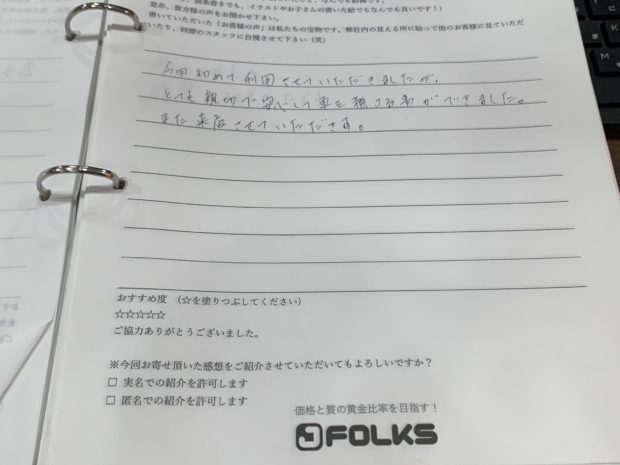 是非、貴方様の声をお聞かせ下さい。
書いていただいた「お客様の声」は私たちの宝物です。弊社内の見える所に貼って他のお客様に見ていただ
いたり、同僚のスタッフに自慢させて下さい（笑）
今回初めて利用させていただきましたが、
とても親切で安心して車を預ける事ができました。
また来店させていただきます。
おすすめ度　（☆を塗りつぶしてください）
☆☆☆☆☆
ご協力ありがとうございました。
※今回お寄せ頂いた感想をご紹介させていただいてもよろしいですか？
□ 実名での紹介を許可します
□ 匿名での紹介を許可します
価格と質の黄金比率を目指す！
FOLKS